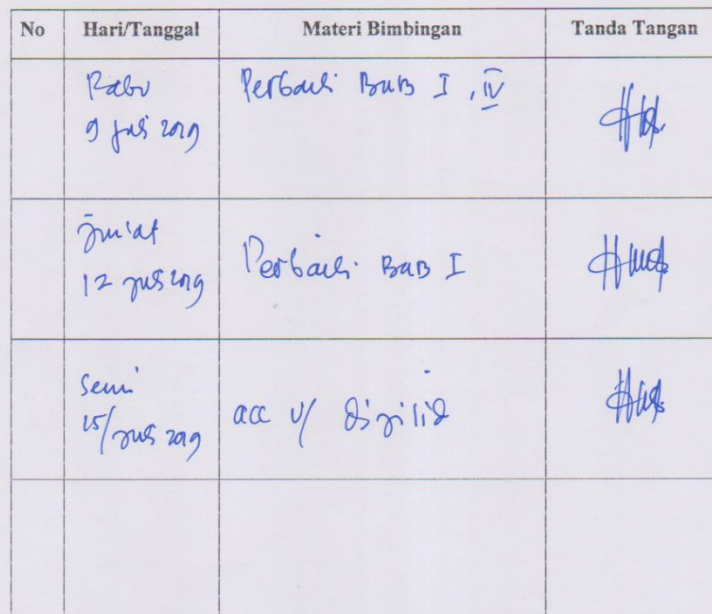 No Hari/Tanggal Materi Bimbingan Tanda Tangan
Rabu Perbaiki BAB I, IV
9 Juli 2019
Jum'at
12 Juli 2019 Perbaiki BAB I
Senin
15/Juli 2019 acc u/ dijilid